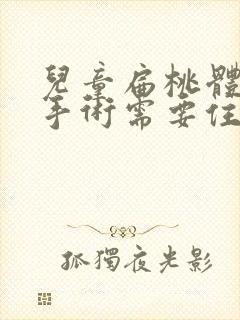 兒童扁桃體
手術需要住
孤獨夜光影